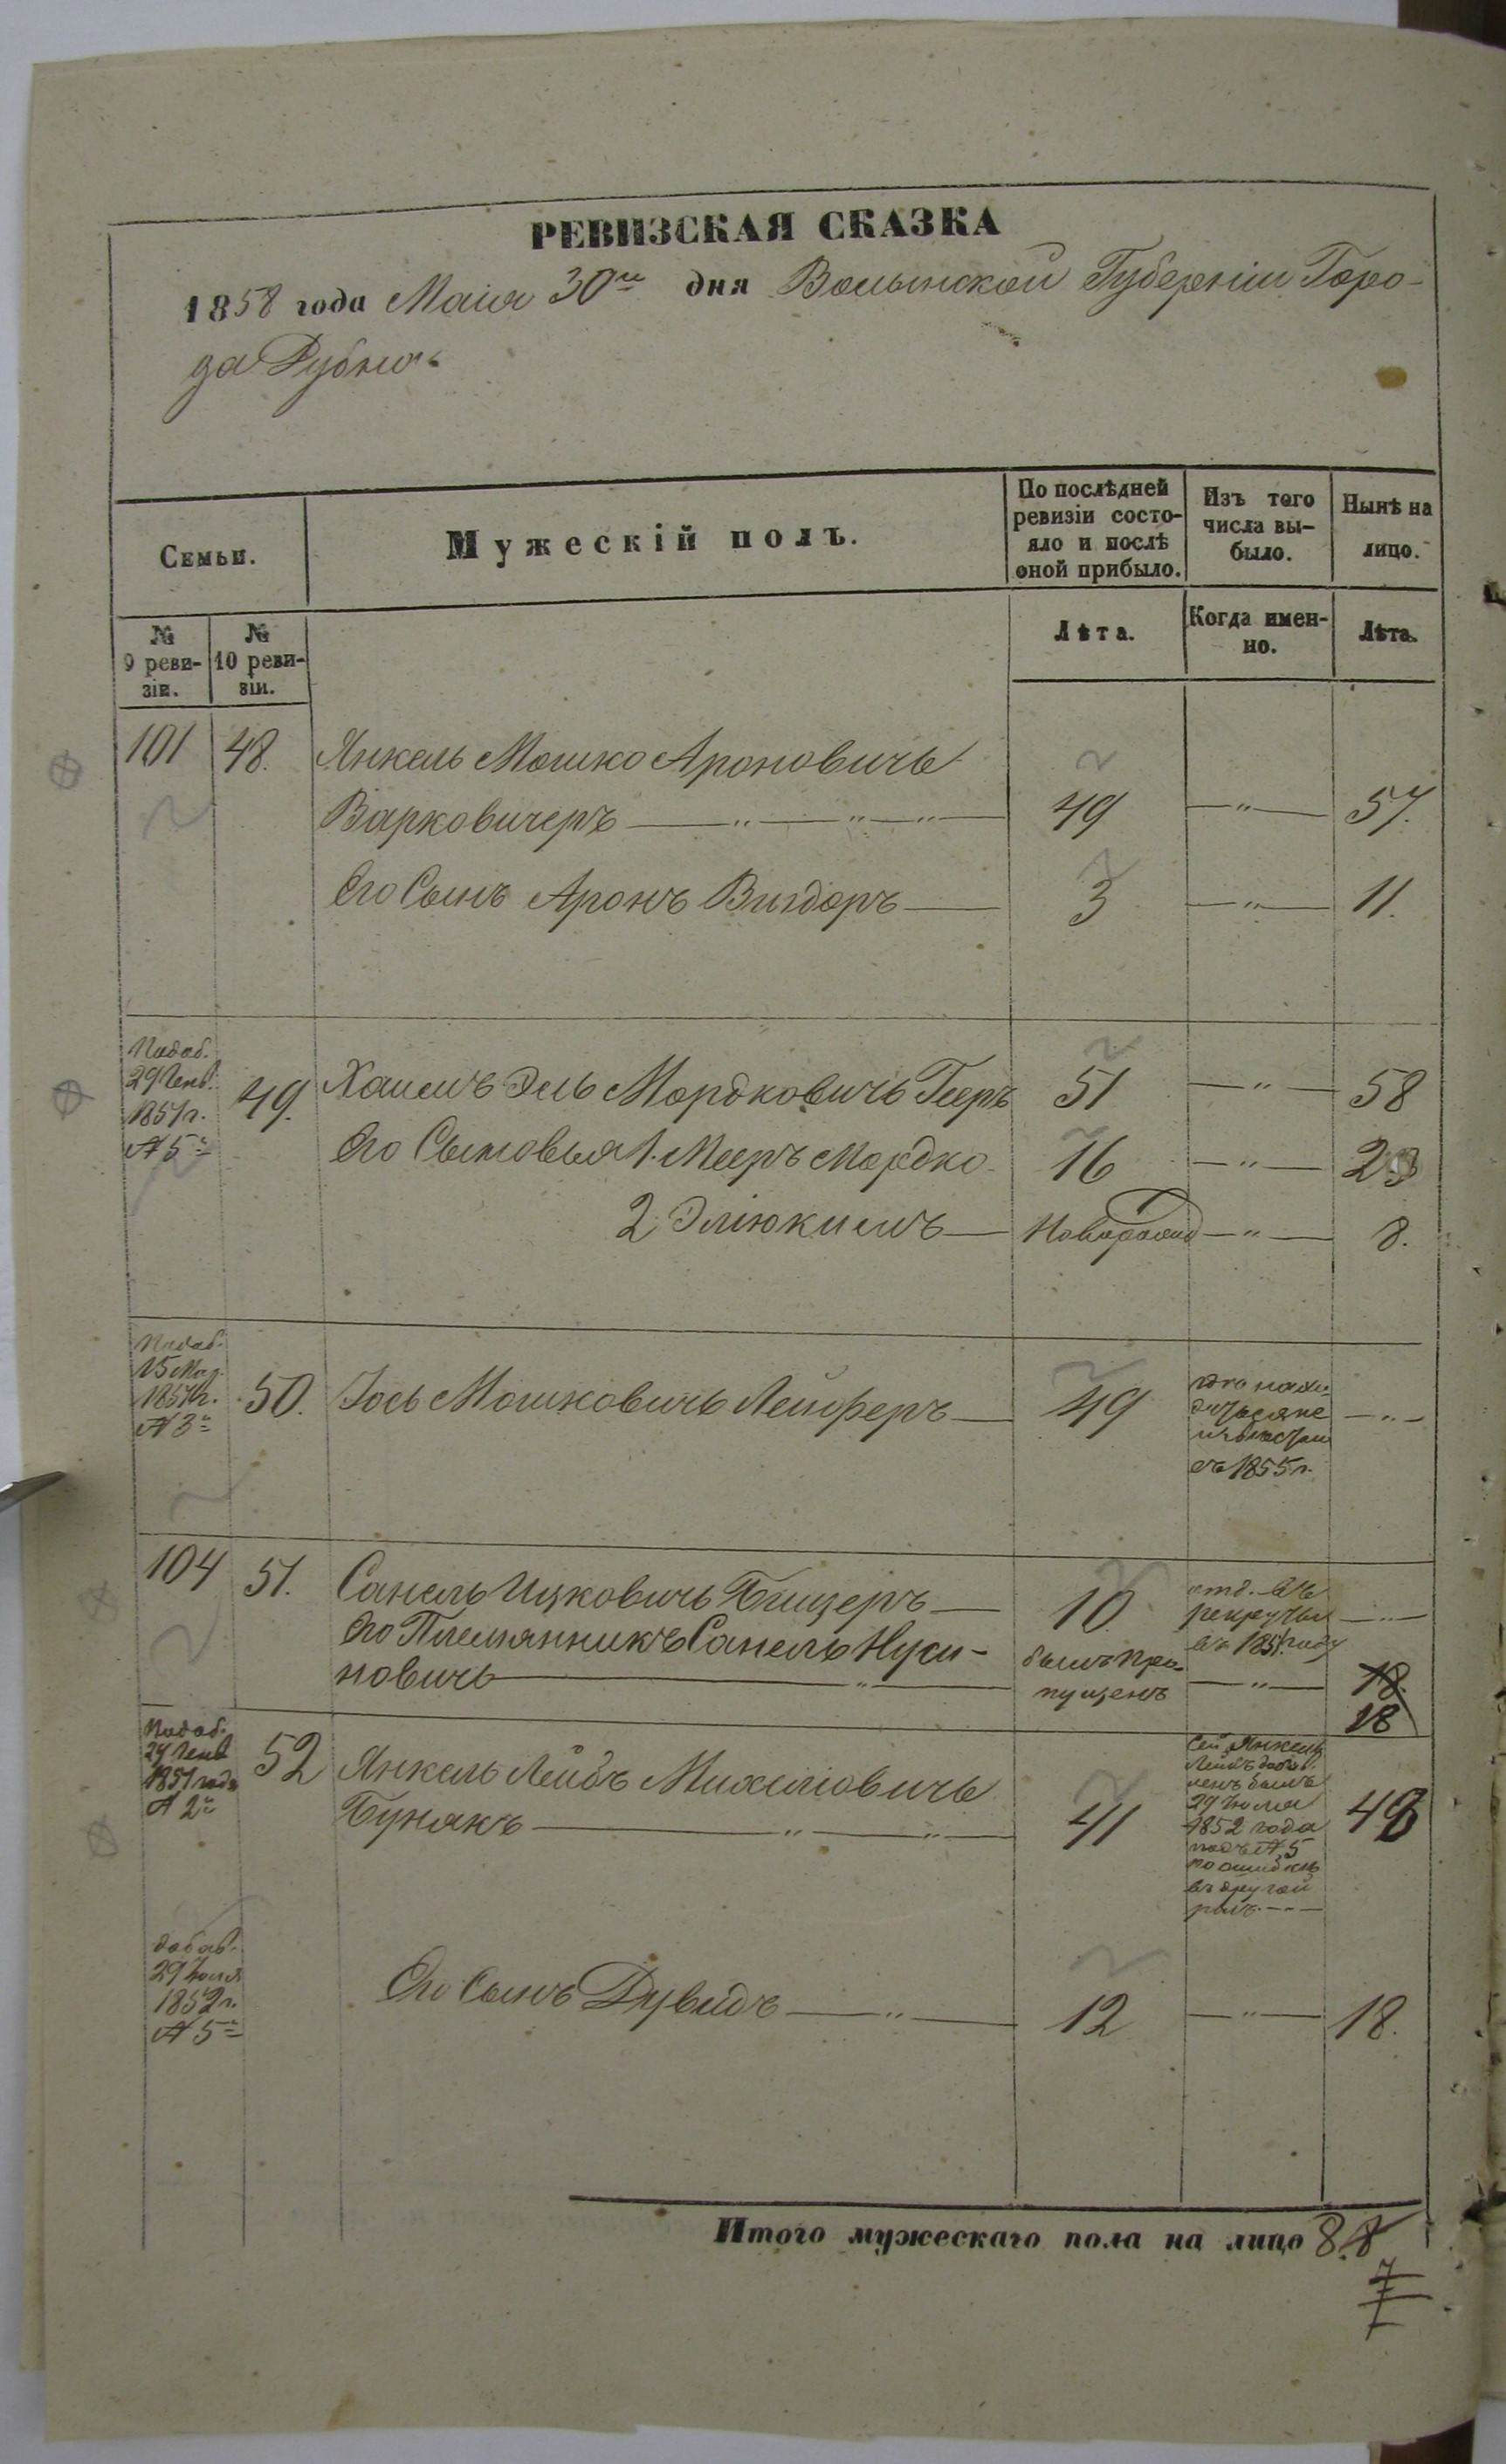 РЕВИЗСКАЯ СКАЗКА
1858 года Маія 30го дня Волынской Губерніи Горо-
да Дубно
Семьи.
Мужескій полъ.
По послѣдней ревизіи состо-
яло и послѣ оной прибыло.
Изъ того числа вы-
было.
Нынѣ на лицо.
№ 9 реви-
зіи.
№ 10 реви-
зіи.
Лѣта.
Когда имен-
но.
Лѣта.
101 48. Янкель Мошко Ароновичь
Варковичеръ — „ — „ — „ — 49 — „ — 57.
Его Сынъ Аронъ Вигдоръ — 3 — „ — 11.
Подоб.
29 Генв.
1851 г.
№ 5
49. Хаимъ Эль Мордковичь Гееръ 51 — „ — 58
Его Сыновья 1. Мееръ Мордко 16 — „ — 23
2 Эліокимъ — Новорожд — „ — 8.
15 Мар.
1851 г.
№ 3
50. Іось Мошковичь Лейферъ — 49
съ 1855 г. — „ —
104 51. Санель Ицковичь Бицеръ — 10
отд. въ
рекруты
въ 1851 году — „ —
Его Племянникъ Санель Нуси-
новичь — „ — былъ про-
пущенъ — „ — 18.
18
29 Генв
1851 года
№ 2
52 Янкель Лейбъ Михелiовичь
Бунякъ — „ — „ — 41
Сей Янкель
Лейбъ добав-
ленъ былъ
29 Іюля
1852 года
подъ № 5
по ошибкѣ
въ другой
разъ. — 48
добав.
29 Іюля
1852 г.
№ 5
Его Сынъ Дувидъ — „ — 12 — „ — 18.
Итого мужескаго пола на лицо 8. 8
7